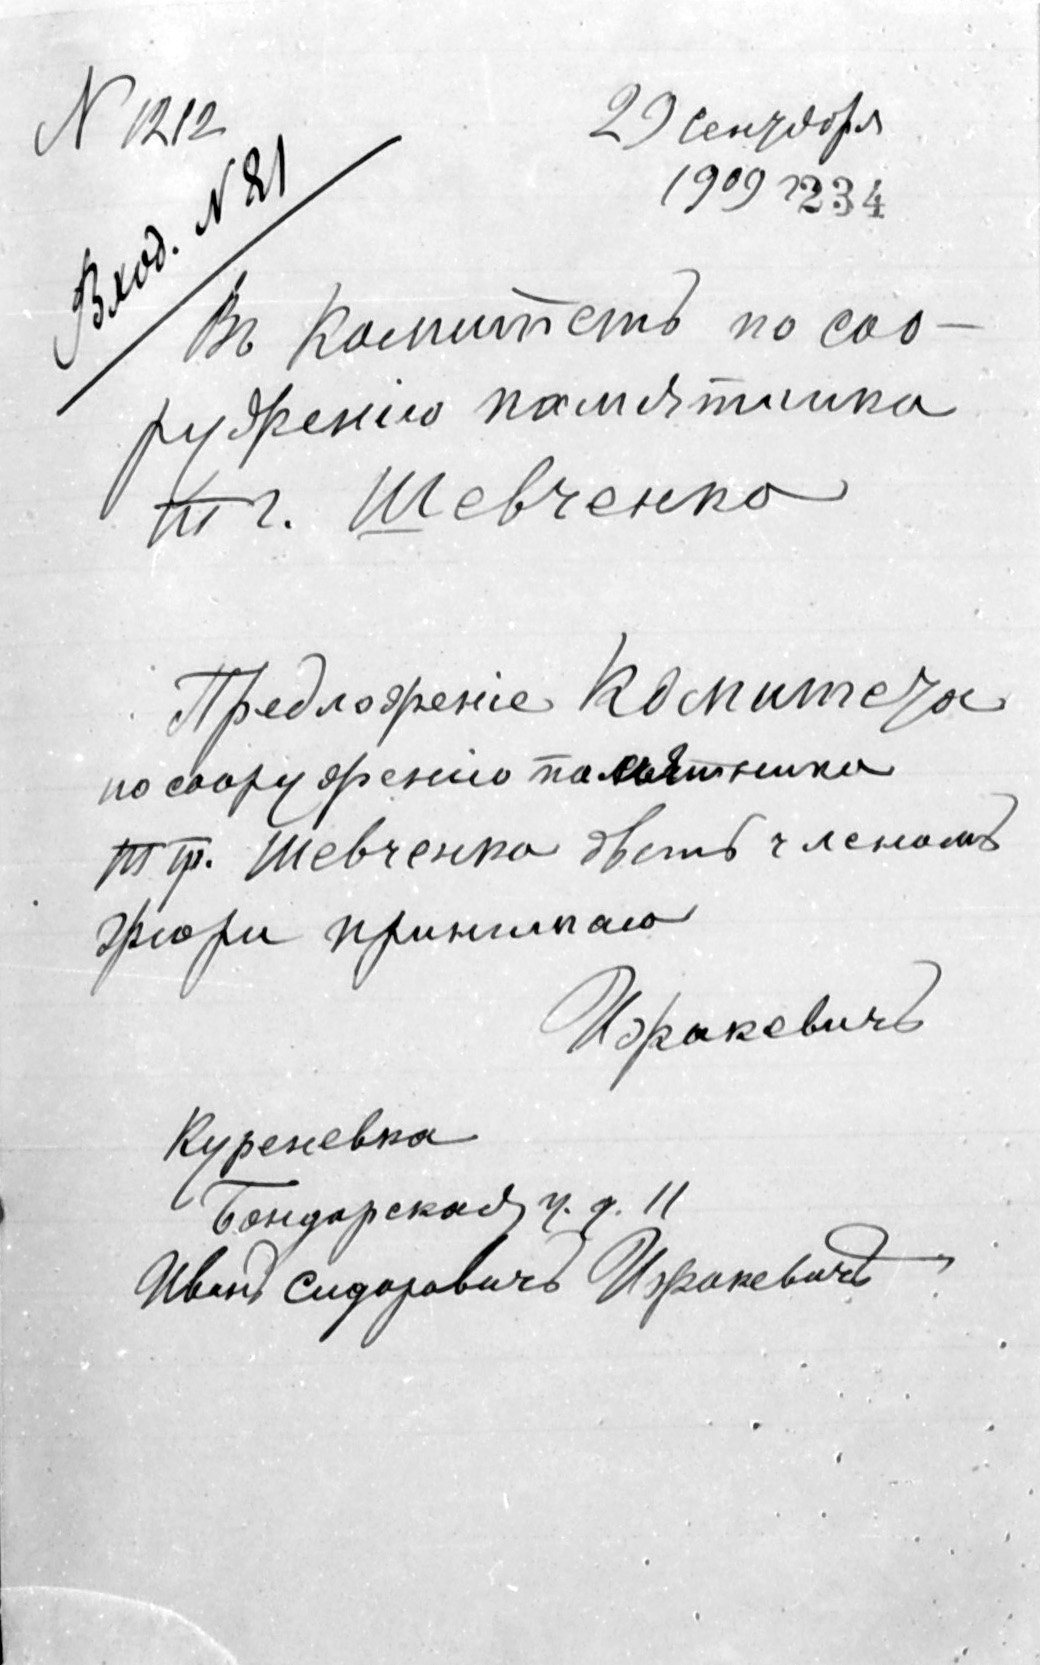 N 1212
29 сентября
1909 г 234
Вход. N 81
Въ Комитетъ по соо-
руженію памятника
Т Г. Шевченко
Предложеніе Комитета
по сооруженію памятника
Т Гр. Шевченко быть членомъ
жюри принимаю
Ижакевичъ
Куреневка
Бондарская у. д. 11
Иванъ Сидоровичъ Ижакевичъ